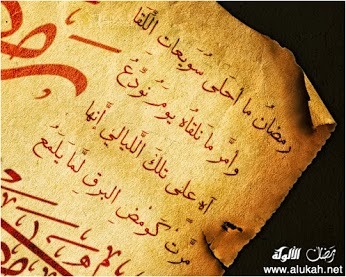 رمضانُ ما أحلى سويعات اللقا
وأمرّ ما نلقاه يوم نودّعُ
آه على تلك الليالي إنها
مرّت كومض البرق لمّا يلمع
رمضان الألوكة
www.alukah.net